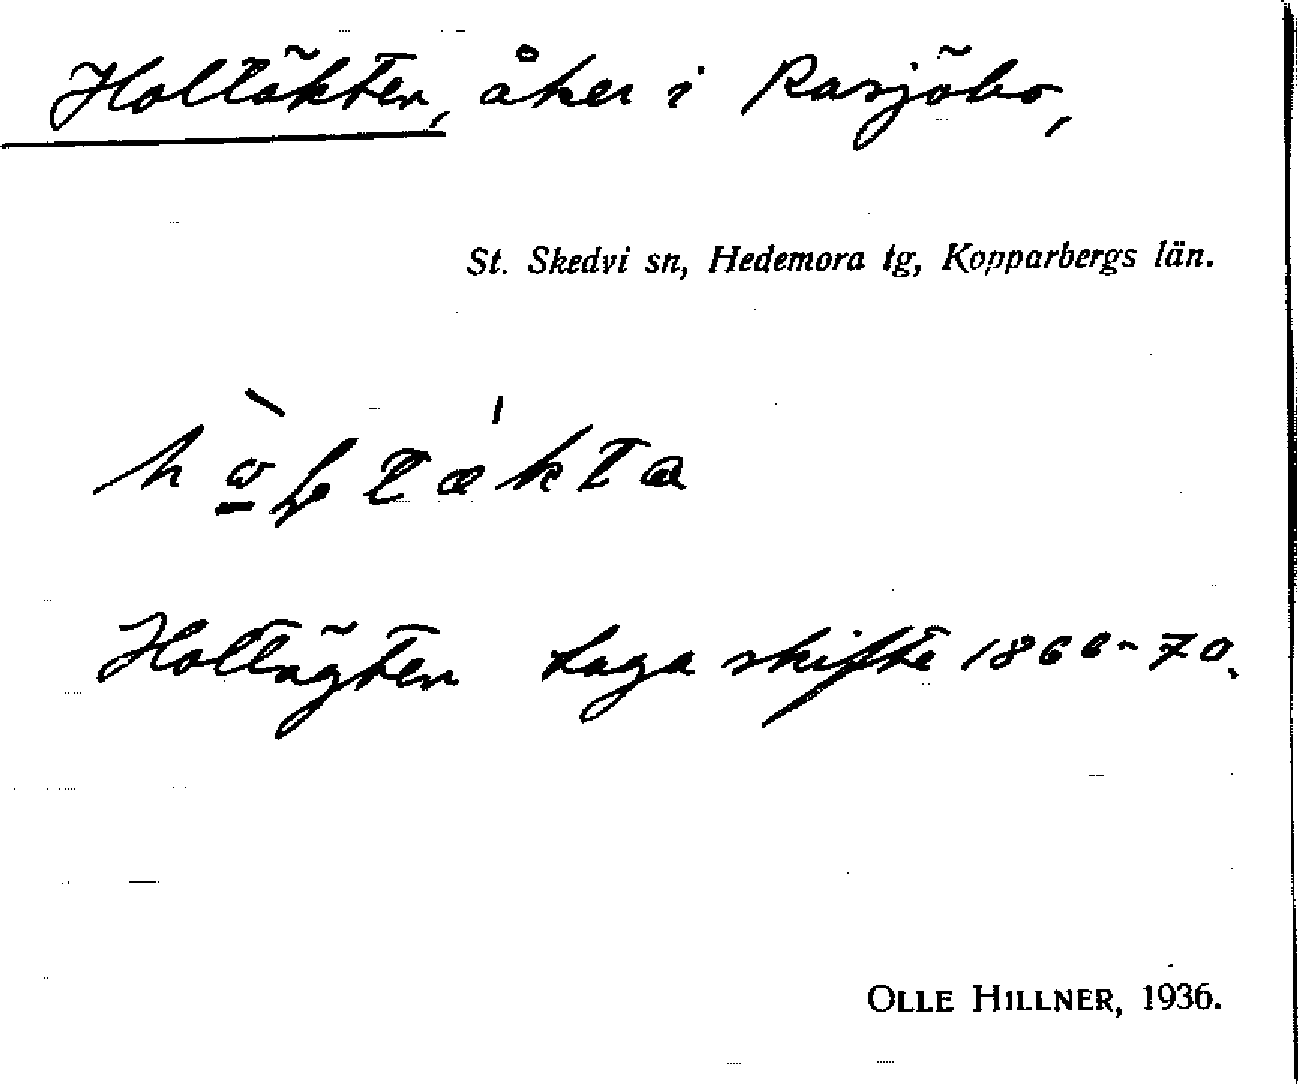 Holtäkten, åker i Rasjöbo,
St. Skedvi sn, Hedemora tg, Kopparbergs län.
Holtägten Laga skifte 1866-70.
OLLE HILLNER, 1936.